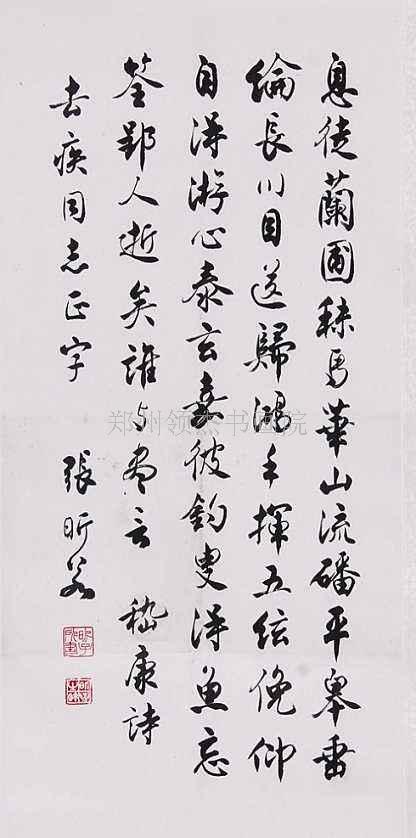 息徒蘭圃秣馬華山流磻平皋垂
綸長川目送歸鴻手揮五絃俛仰
自得游心泰玄嘉彼釣叟得魚忘
筌郢人逝矣誰与盡言 嵇康詩
去疾同志正字 張昕若
郑州领杰书画院